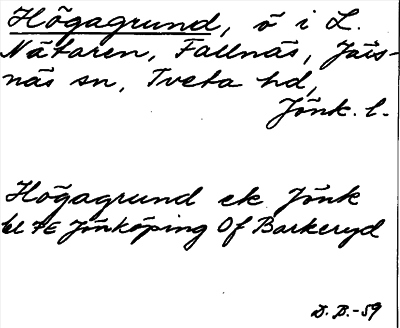 Högagrund, ö i L.
Nätaren, Fallnäs, Järs-
näs sn, Tveta hd,
Jönk. l.
Högagrund ek Jönk
bl 7E Jönköping Of Barkeryd
D. B. -59